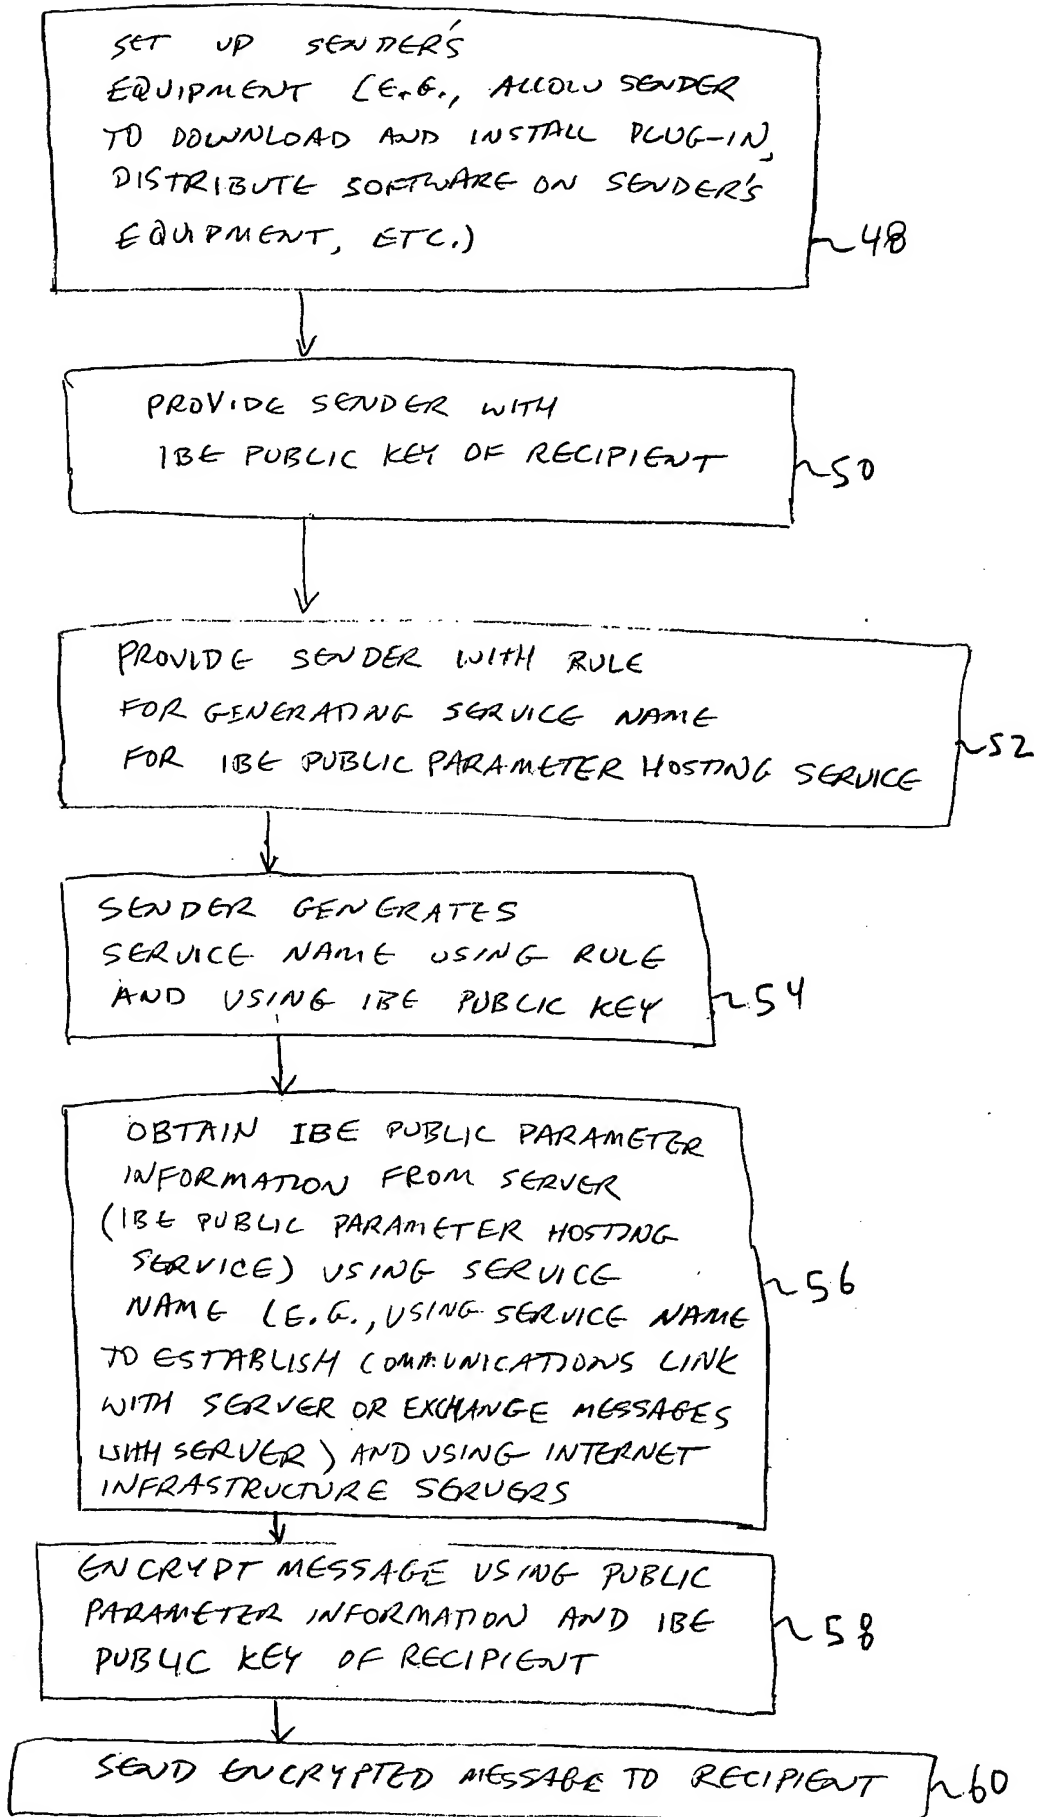 SET UP SENDER'S
EQUIPMENT (E.G., ALLOW SENDER
TO DOWNLOAD AND INSTALL PLUG-IN,
DISTRIBUTE SOFTWARE ON SENDER'S
EQUIPMENT, ETC.)
48
PROVIDE SENDER WITH
IBE PUBLIC KEY OF RECIPIENT
50
PROVIDE SENDER WITH RULE
FOR GENERATING SERVICE NAME
FOR IBE PUBLIC PARAMETER HOSTING SERVICE
52
SENDER GENERATES
SERVICE NAME USING RULE
AND USING IBE PUBLIC KEY
54
OBTAIN IBE PUBLIC PARAMETER
INFORMATION FROM SERVER
(IBE PUBLIC PARAMETER HOSTING
SERVICE) USING SERVICE
NAME (E.G., USING SERVICE NAME
TO ESTABLISH COMMUNICATIONS LINK
WITH SERVER OR EXCHANGE MESSAGES
WITH SERVER) AND USING INTERNET
INFRASTRUCTURE SERVERS
56
ENCRYPT MESSAGE USING PUBLIC
PARAMETER INFORMATION AND IBE
PUBLIC KEY OF RECIPIENT
58
SEND ENCRYPTED MESSAGE TO RECIPIENT
60